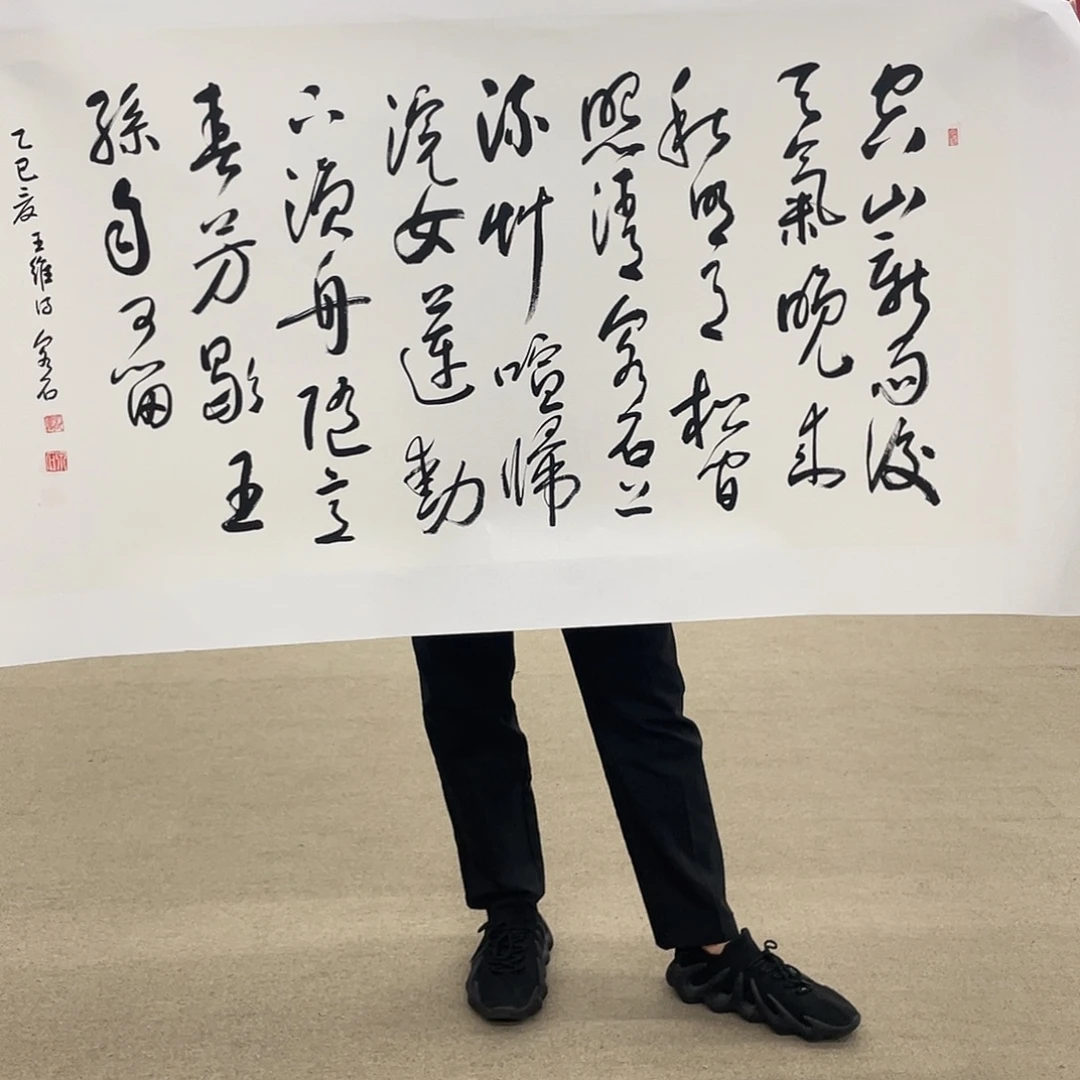 空山新雨後
天氣晚來
秋明月松間
照清泉石上
流竹喧歸
浣女蓮動
下漁舟隨意
春芳歇王
孫自可留
乙巳夏王維詩石